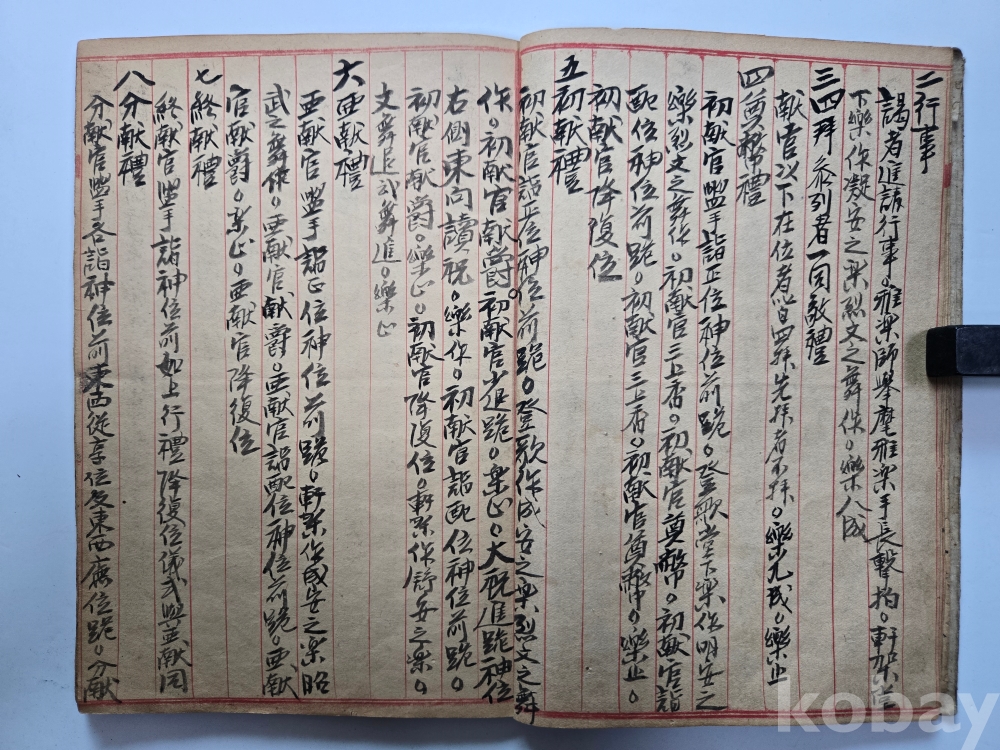 二行事
謁者進請行事。雅楽師擧麾雅楽手長擊拍。軒架堂
下樂作凝安之楽烈文之舞作。樂八成
三四拜 参列者一同敬禮
献官以下在位者皆四拜先拜者不拜。樂九成。樂止
四奠幣禮
初献官盥手詣正位神位前跪。登歌堂下楽作明安之
樂烈文之舞作。初献官三上香。初献官奠幣。初献官詣
配位神位前跪。初献官三上香。初献官奠幣。樂止。
初献官降復位
五初献禮
初献官詣正位神位前跪。登歌作成安之楽烈文之舞
作。初献官献爵。初献官少退跪。楽止。大祝進跪神位
右側東向讀祝。樂作。初献官詣配位神位前跪。
初献官献爵。樂止。初献官降復位。軒架作舒安之楽。
文舞退武舞進。樂止
六亜献禮
亜献官盥手詣正位神位前跪。軒架作成安之楽昭
武之舞作。亜献官献爵。亜献官詣配位神位前跪。亜献
官献爵。楽止。亜献官降復位
七終献禮
終献官盥手詣神位前如上行禮降復位儀式與亜献同
八分献禮
分献官盥手各詣神位前東西從享位及東西廡位跪。分献
kobay